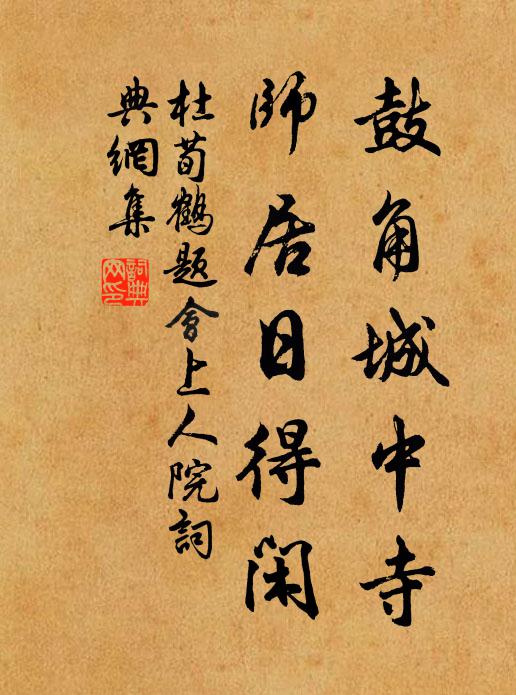 鼓角城中寺
師居日得閑
杜荀鶴題會上人院詞
典網集
詞典網印